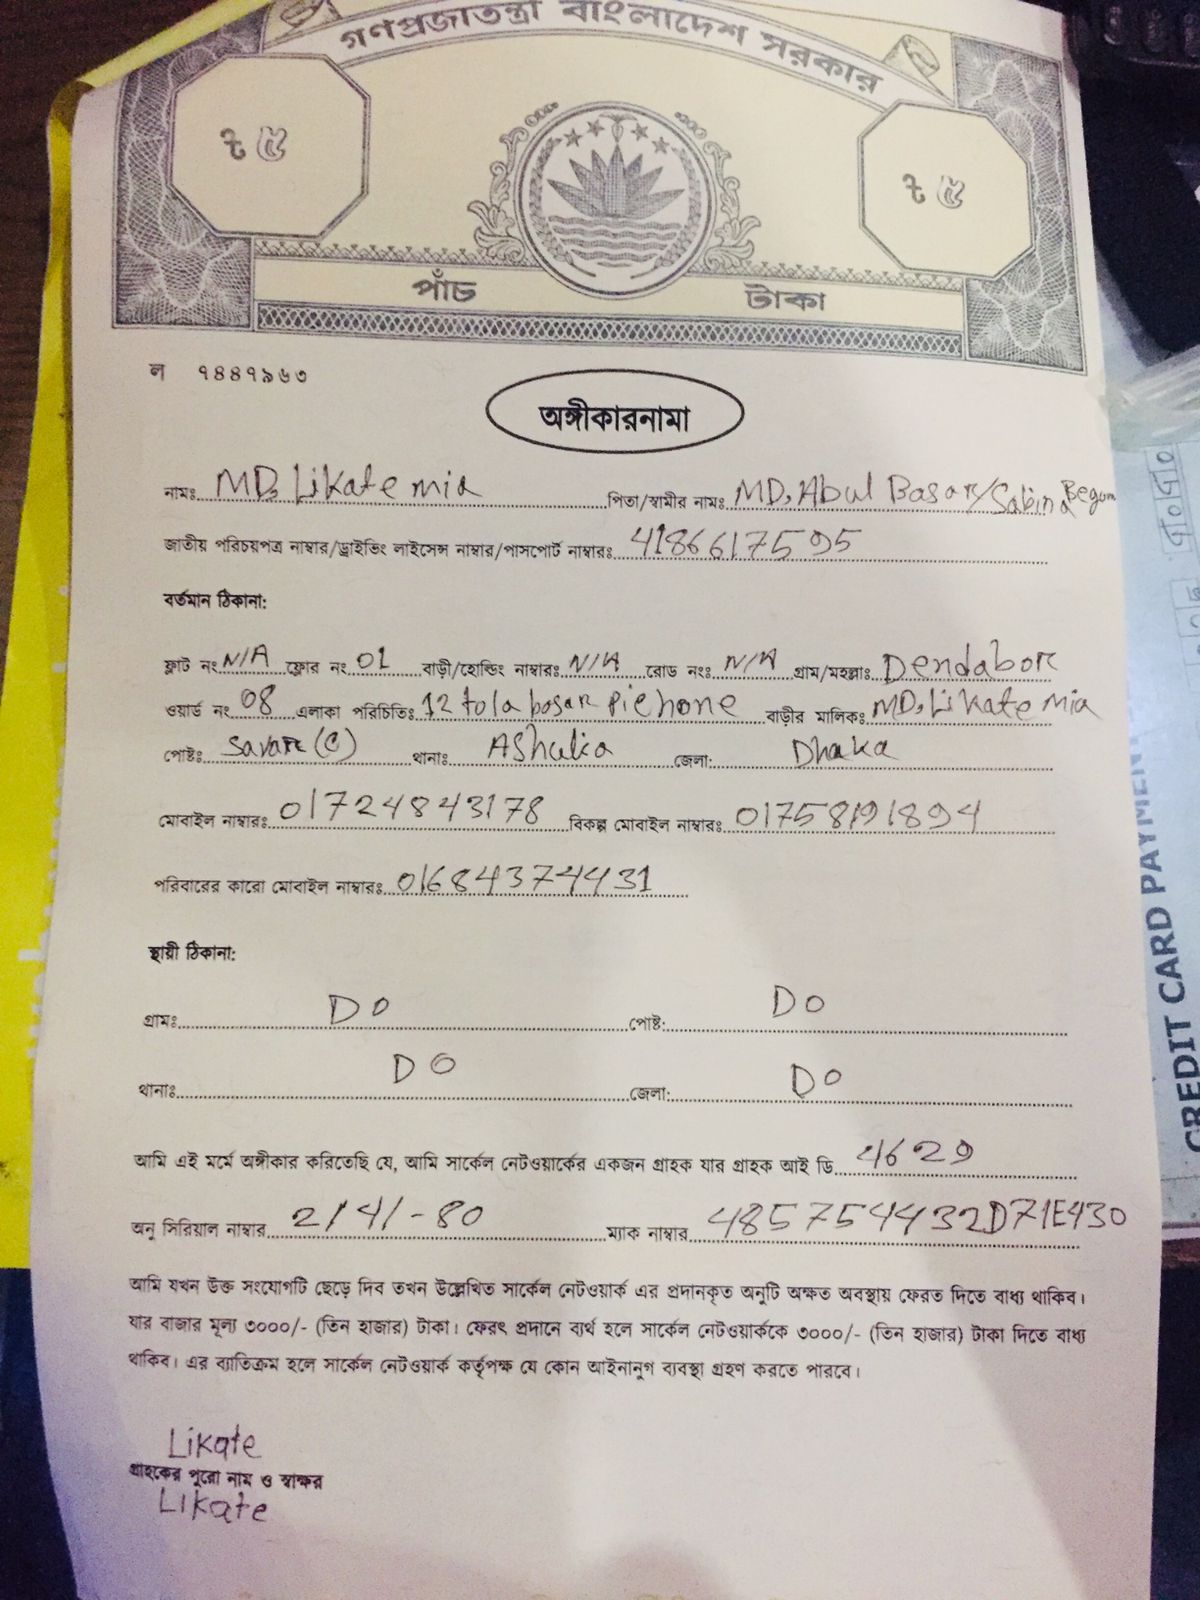 গণপ্রজাতন্ত্রী বাংলাদেশ সরকার
৳ ৫ ৳ ৫
পাঁচ টাকা
ল ৭৪৪৭৯৬৩
অঙ্গীকারনামা
নামঃ MD, Likate mia পিতা/স্বামীর নামঃ MD, Abul Basar/Sabina Begum
জাতীয় পরিচয়পত্র নাম্বার/ড্রাইভিং লাইসেন্স নাম্বার/পাসপোর্ট নাম্বারঃ 4186617595
বর্তমান ঠিকানা:
ফ্লাট নং N/A ফ্লোর নং 01 বাড়ী/হোল্ডিং নাম্বারঃ N/A রোড নংঃ N/A গ্রাম/মহল্লাঃ Dendabor
ওয়ার্ড নং 08 এলাকা পরিচিতিঃ 12 tola basar pichone বাড়ীর মালিকঃ MD, Likate mia
পোষ্টঃ Savar (C) থানাঃ AShulia জেলা: Dhaka
মোবাইল নাম্বারঃ 01724843178 বিকল্প মোবাইল নাম্বারঃ 01758191894
পরিবারের কারো মোবাইল নাম্বারঃ 01684374431
স্থায়ী ঠিকানা:
গ্রামঃ DO পোষ্ট: DO
থানাঃ DO জেলা: DO
আমি এই মর্মে অঙ্গীকার করিতেছি যে, আমি সার্কেল নেটওয়ার্কের একজন গ্রাহক যার গ্রাহক আই ডি 4629
অনু সিরিয়াল নাম্বার 2/4/-80 ম্যাক নাম্বার 485754432D71E430
আমি যখন উক্ত সংযোগটি ছেড়ে দিব তখন উল্লেখিত সার্কেল নেটওয়ার্ক এর প্রদানকৃত অনুটি অক্ষত অবস্থায় ফেরত দিতে বাধ্য থাকিব।
যার বাজার মূল্য ৩০০০/- (তিন হাজার) টাকা। ফেরৎ প্রদানে ব্যর্থ হলে সার্কেল নেটওয়ার্ককে ৩০০০/- (তিন হাজার) টাকা দিতে বাধ্য
থাকিব। এর ব্যাতিক্রম হলে সার্কেল নেটওয়ার্ক কর্তৃপক্ষ যে কোন আইনানুগ ব্যবস্থা গ্রহণ করতে পারবে।
Likate
গ্রাহকের পুরো নাম ও স্বাক্ষর
Likate
CREDIT CARD PAYMENT